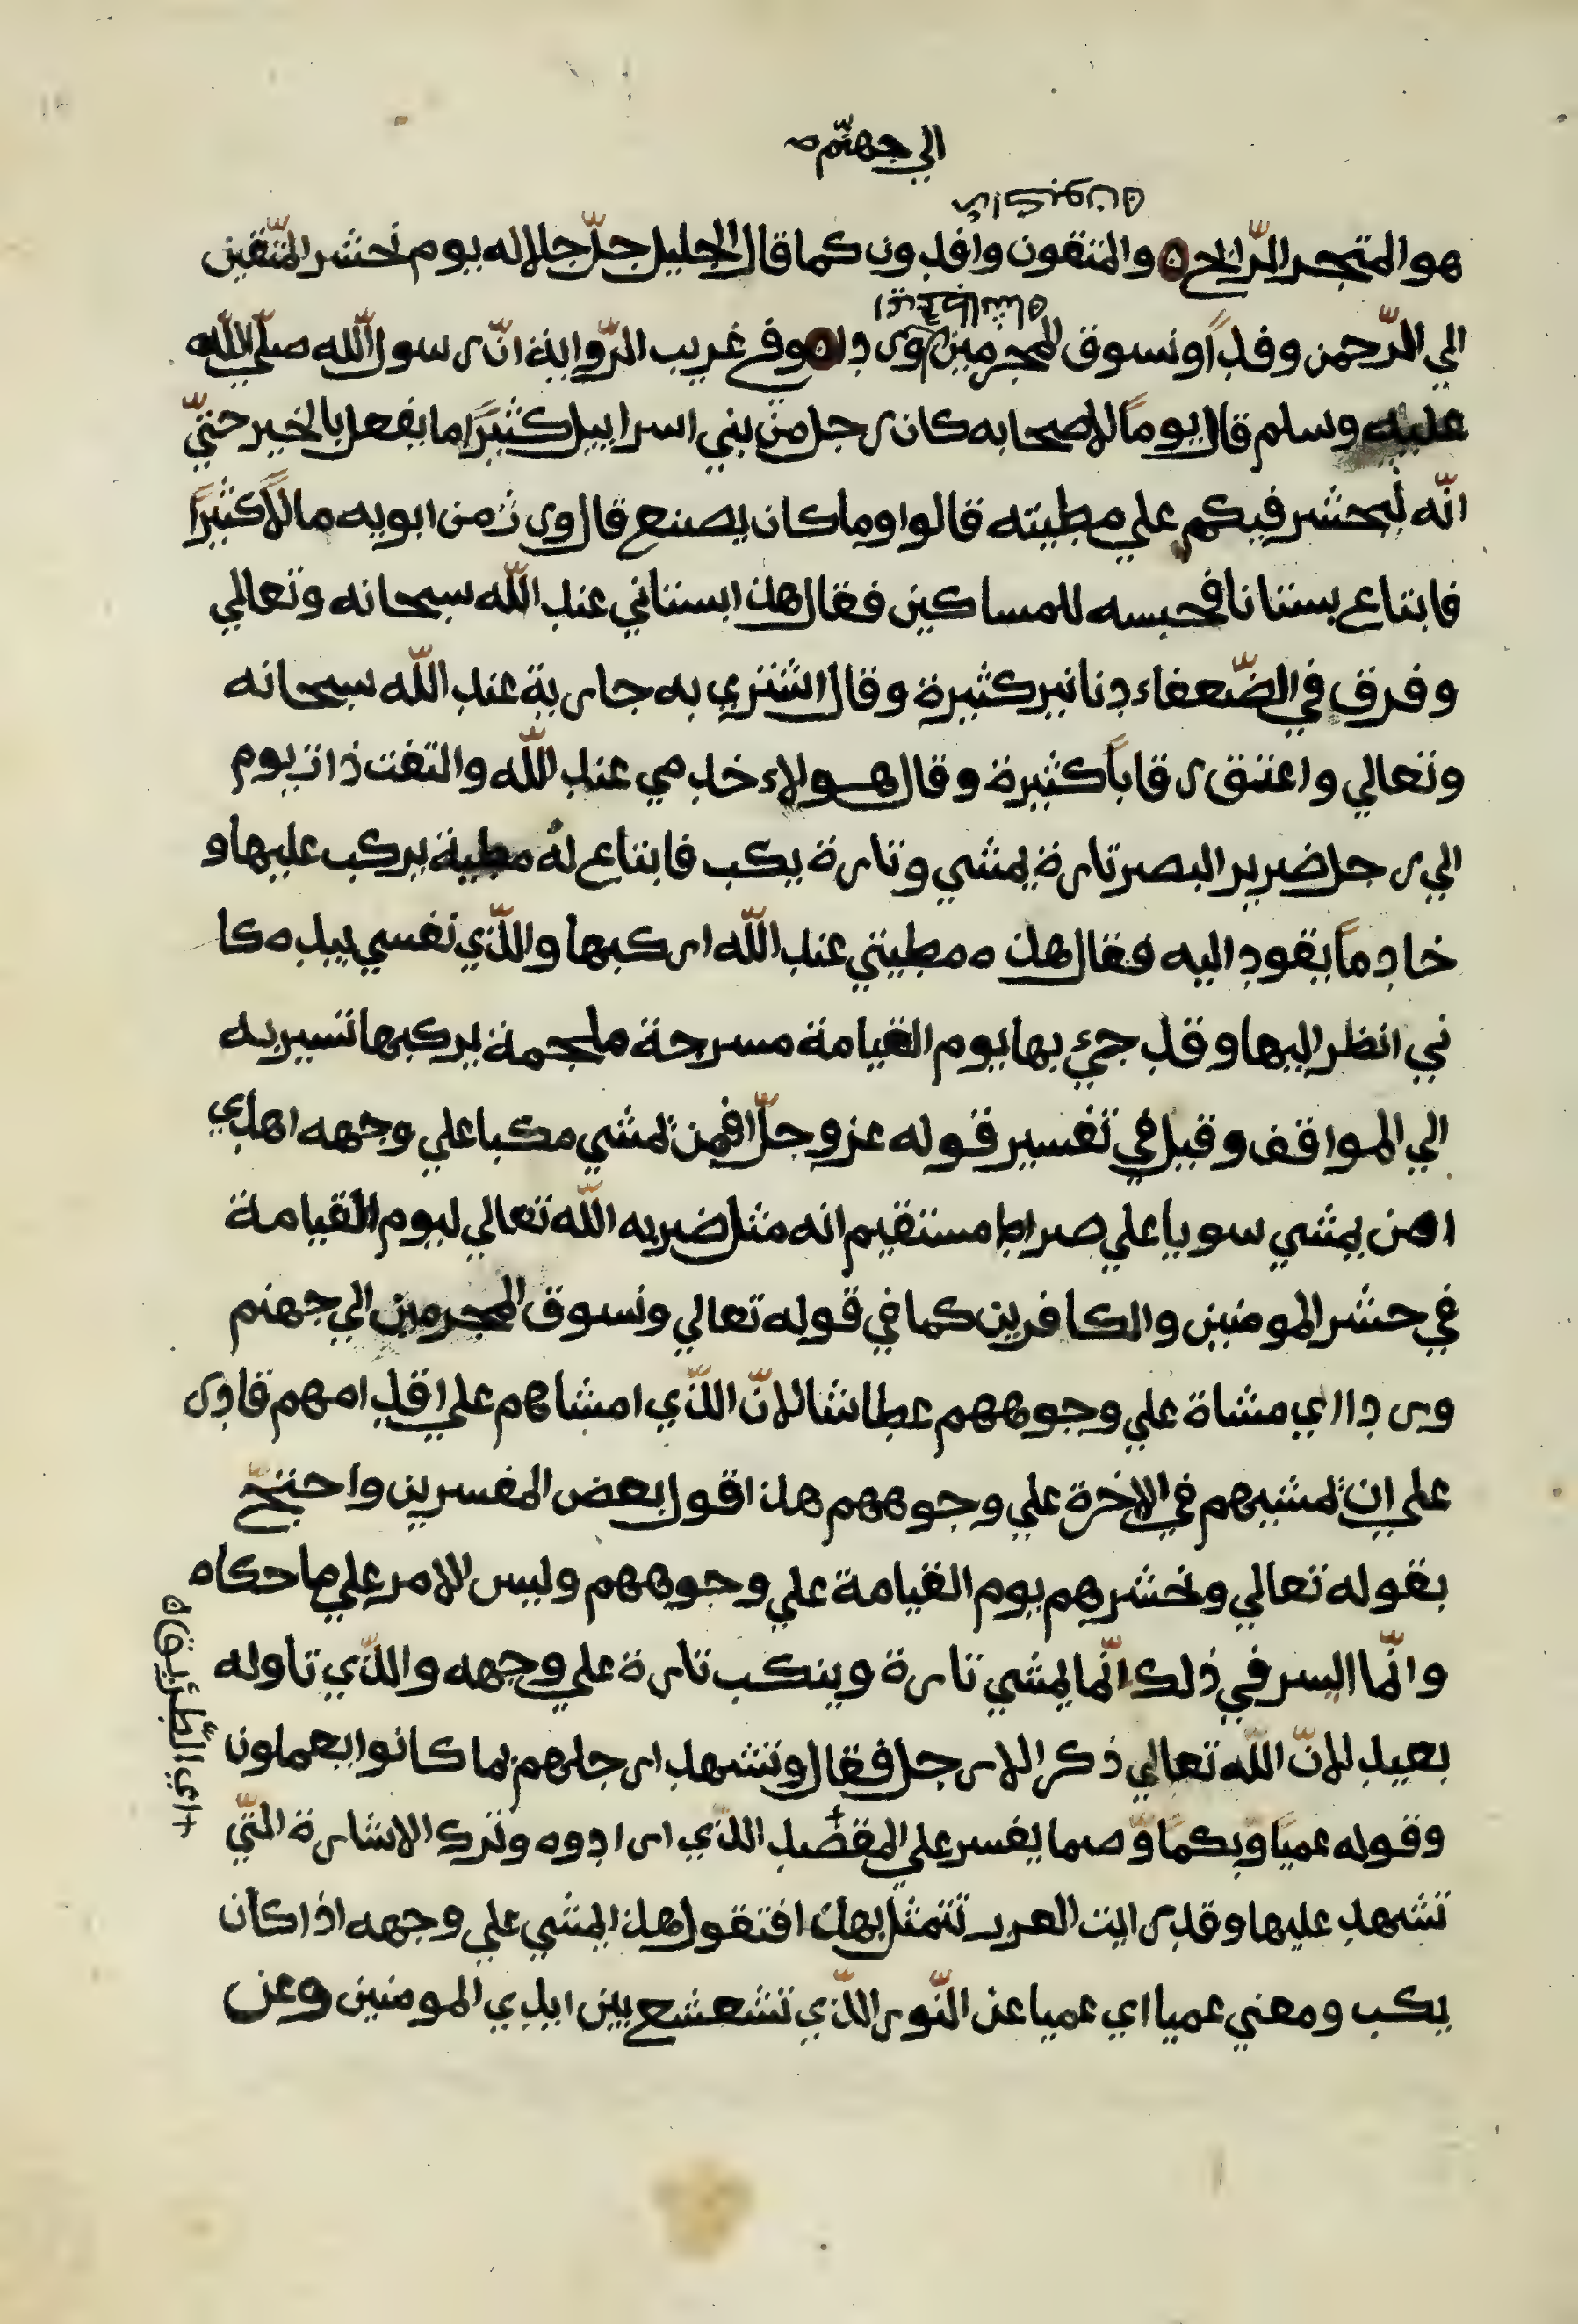 الي جهنّم
هو المتجر الرّابح والمتقون وافدون كما قال الجليل جلّ جلاله يوم نحشر المتّقين
الي الرّحمن وفداً ونسوق المجرمين وردا وفي غريب الرّواية انّ رسول اللّه صلّي اللّه
عليه وسلم قال يوماً لاصحابه كان رجل من بني اسراييل كثيراً ما يفعل بالخير حتيّ
انّه ليحشر فيكم علي مطيته قالوا وما كان يصنع قال ورث من ابويه مالاً كثيراً
فابتاع بستانا فحبسه للمساكين فقال هذا بستاني عند اللّه سبحانه وتعالي
وفرق في الضّعفاء دنانير كثيرة وقال اشتري به جارية عند اللّه سبحانه
وتعالي واعتق رقاباً كثيرة وقال هولاء خدمي عند اللّه والتفت ذات يوم
الي رجل ضرير البصر تارة يمشي وتارة يكب فابتاع له مطية يركب عليها و
خادماً يقود اليه فقال هذه مطيتي عند اللّه اركبها والذّي نفسي بيده كا
ني انظر اليها وقد جيء بها يوم القيامة مسرجة ملجمة يركبها تسير به
الي المواقف وقيل في تفسير قوله عز وجلّ افمن يمشي مكبا علي وجهه اهدي
امن يمشي سويا علي صراط مستقيم انه مثل ضربه اللّه تعالي ليوم القيامة
في حشر المومنين والكافرين كما في قوله تعالي ونسوق المجرمين الي جهنم
وردا اي مشاة علي وجوههم عطاشا لانّ الذّي امشاهم علي اقدامهم قادر
علي ان يمشيهم في الاخرة علي وجوههم هذا قول بعض المفسرين واحتجّ
بقوله تعالي ونحشرهم يوم القيامة علي وجوههم وليس الامر علي ما حكاه
وانّما السر في ذلك انّما يمشي تارة وينكب تارة علي وجهه والذّي تاوله
بعيد لانّ اللّه تعالي ذكر الارجل فقال وتشهد ارجلهم بما كانوا يعملون
وقوله عمياً وبكماً وصما يفسر علي المقصد الذّي ارادوه وترك الاشارة التّي
تشهد عليها وقد رايت العرب تتمثل بهذا فتقول هذا يمشي علي وجهه اذا كان
يكب ومعني عميا اي عميا عن النّور الذّي تشعشع بين ايدي المومنين وعن